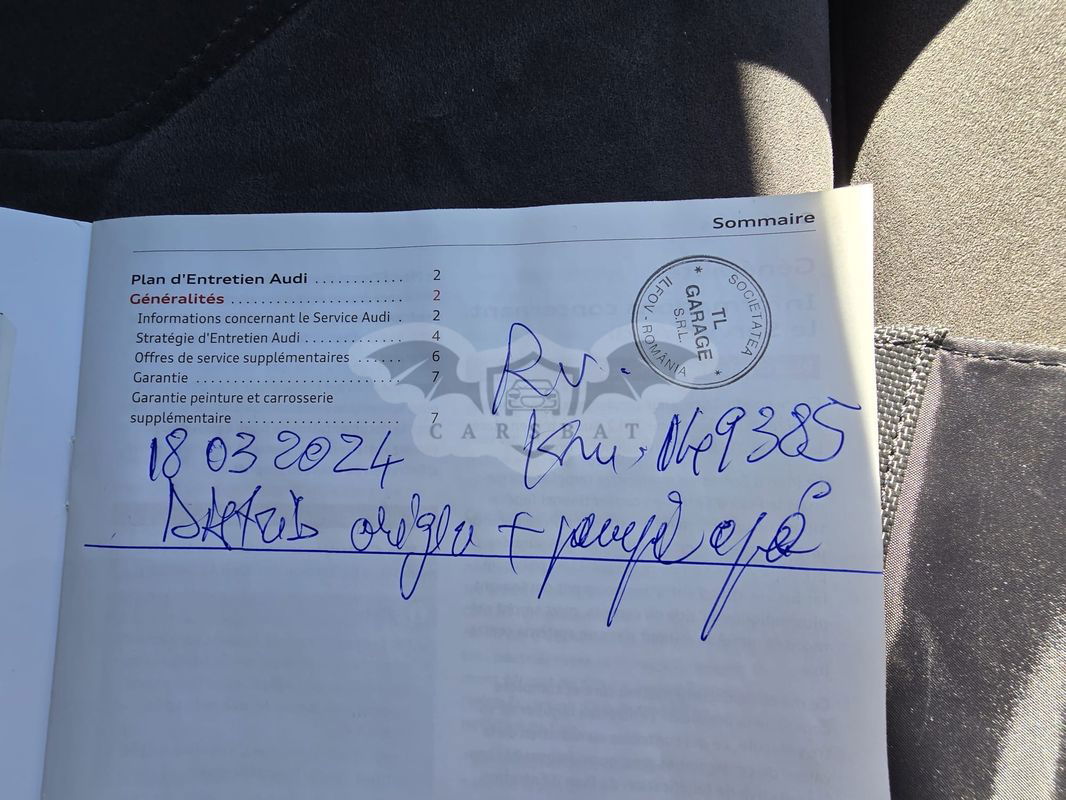 Sommaire
Plan d'Entretien Audi ............ 2
Généralités ....................... 2
Informations concernant le Service Audi . 2
Stratégie d'Entretien Audi ............ 4
Offres de service supplémentaires ...... 6
Garantie .......................... 7
Garantie peinture et carrosserie
supplémentaire .................... 7
SOCIETATEA
TL
GARAGE
S.R.L.
ILFOV - ROMÂNIA
CARSBAT
18 03 2024
+ pompă apă